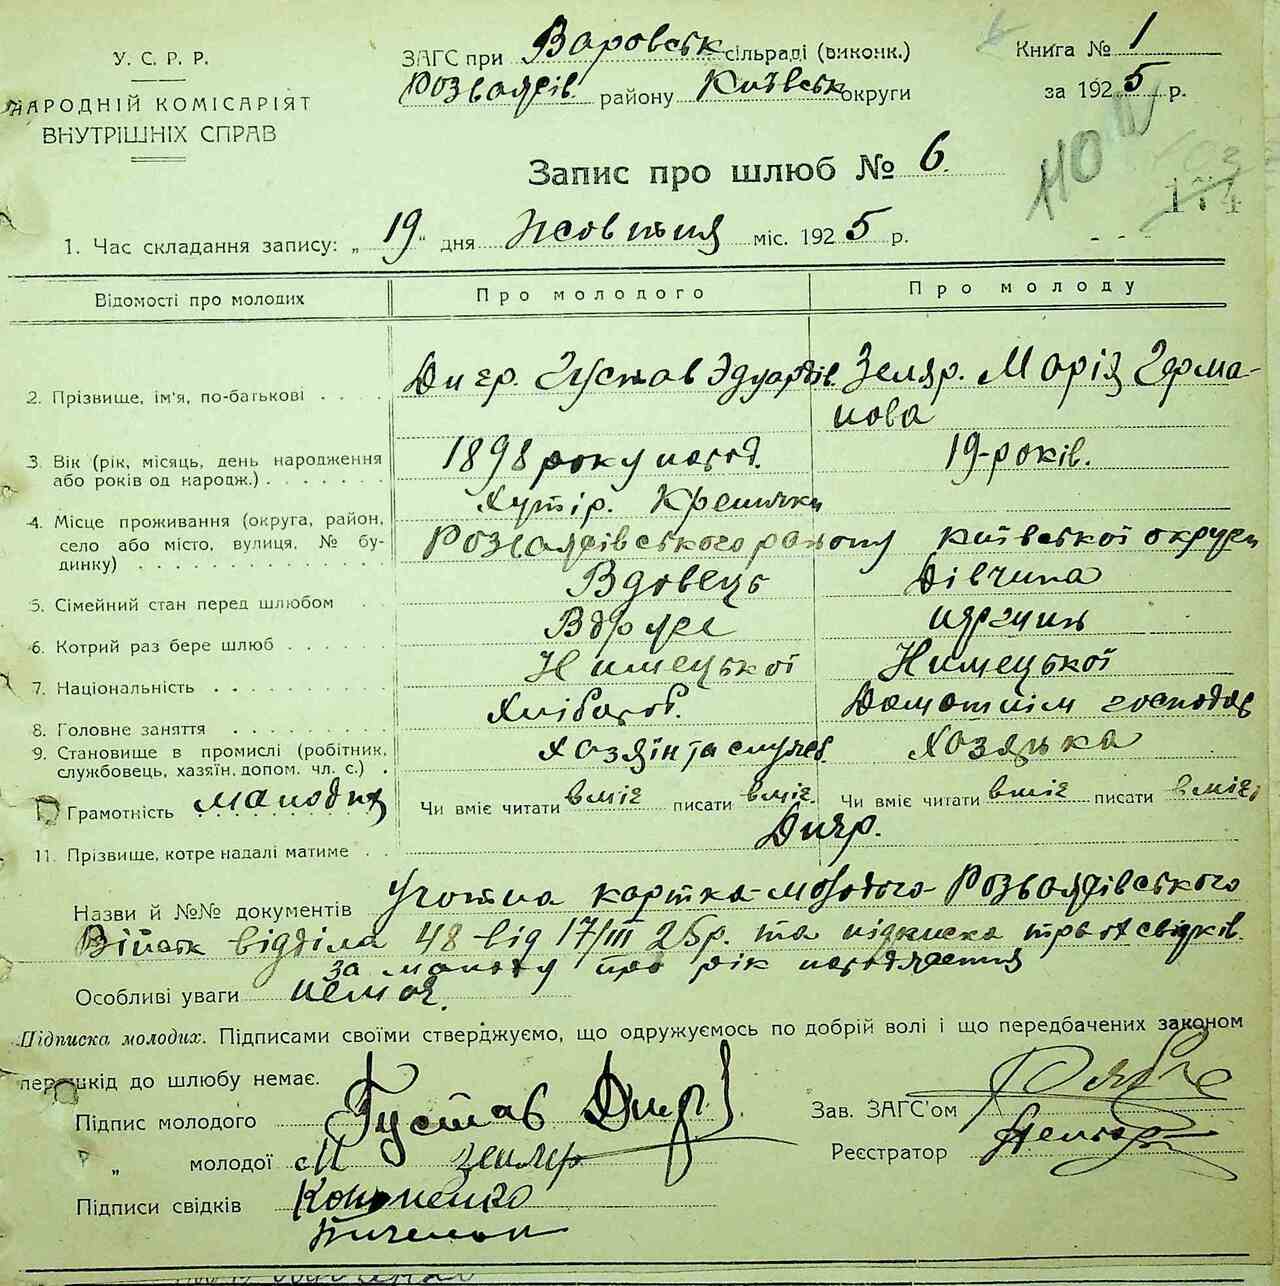 У. С. Р. Р.
НАРОДНІЙ КОМІСАРІЯТ
ВНУТРІШНІХ СПРАВ
ЗАГС при Варовськ сільраді (виконк.)
Розважів району Київськ округи
Книга № 1
за 1925 р.
Запис про шлюб № 6.
110
174
1. Час складання запису: „ 19 " дня Жовтня міс. 1925 р.
Відомості про молодих Про молодого Про молоду
2. Прізвище, ім'я, по-батькові Дигр. Густав Эдуардів. Зеляр. Марія Герма-
нова
3. Вік (рік, місяць, день народження або років од народж.) 1898 року народ. 19-років.
Хутір.
4. Місце проживання (округа, район, село або місто, вулиця, № будинку) Розважівського району Київської округи
5. Сімейний стан перед шлюбом Вдовець Дівчина
6. Котрий раз бере шлюб Вдруге
7. Національність Нимецької Нимецької
8. Головне заняття Хлібороб. Домашнім господар
9. Становище в промислі (робітник, службовець, хазяїн, допом. чл. с.) Хозяїн Хозяйка
Грамотність молодих Чи вміє читати вміє писати вміє. Чи вміє читати вміє писати вміє
11. Прізвище, котре надалі матиме
Назви й №№ документів картка молодого Розважівського
Військ відділа 48 від 17/III 25 р. та підписка трьох свідків.
за молоду про рік народження
Особливі уваги немає.
Підписка молодих. Підписами своїми стверджуємо, що одружуємось по добрій волі і що передбачених законом
перешкід до шлюбу немає.
Підпис молодого Густав
„ молодої М Зеляр
Підписи свідків Кононенко
Зав. ЗАГС'ом
Реєстратор